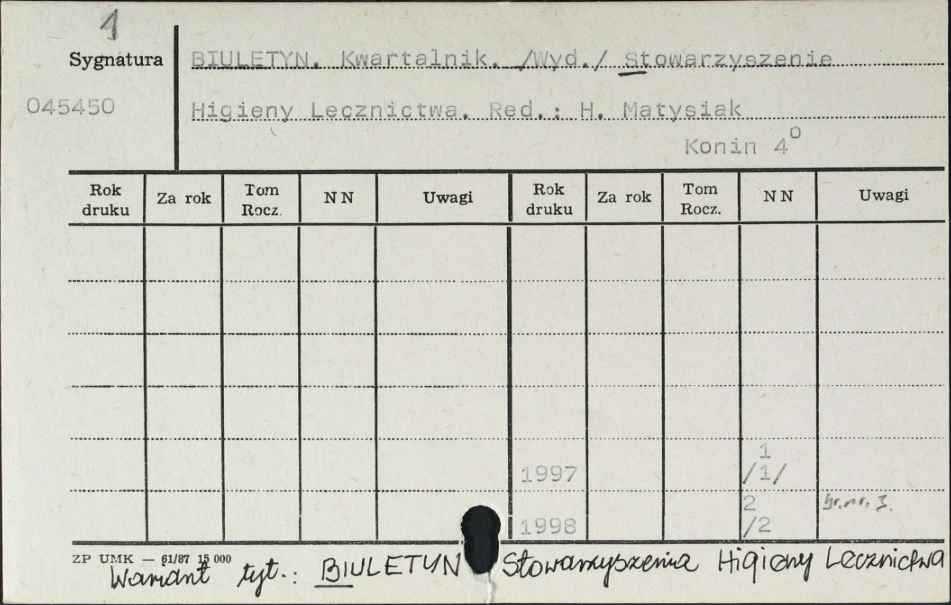 1
Sygnatura BIULETYN. Kwartalnik. /Wyd./ Stowarzyszenie
045450 Higieny Lecznictwa. Red.: H. Matysiak
Konin 4º
Rok druku Za rok Tom Rocz. N N Uwagi Rok druku Za rok Tom Rocz. N N Uwagi
1
1997 /1/
2 br. nr. 3.
1998 /2
ZP UMK — 61/87 15 000
Wariant tyt.: BIULETYN Stowarzyszenia Higieny Lecznictwa